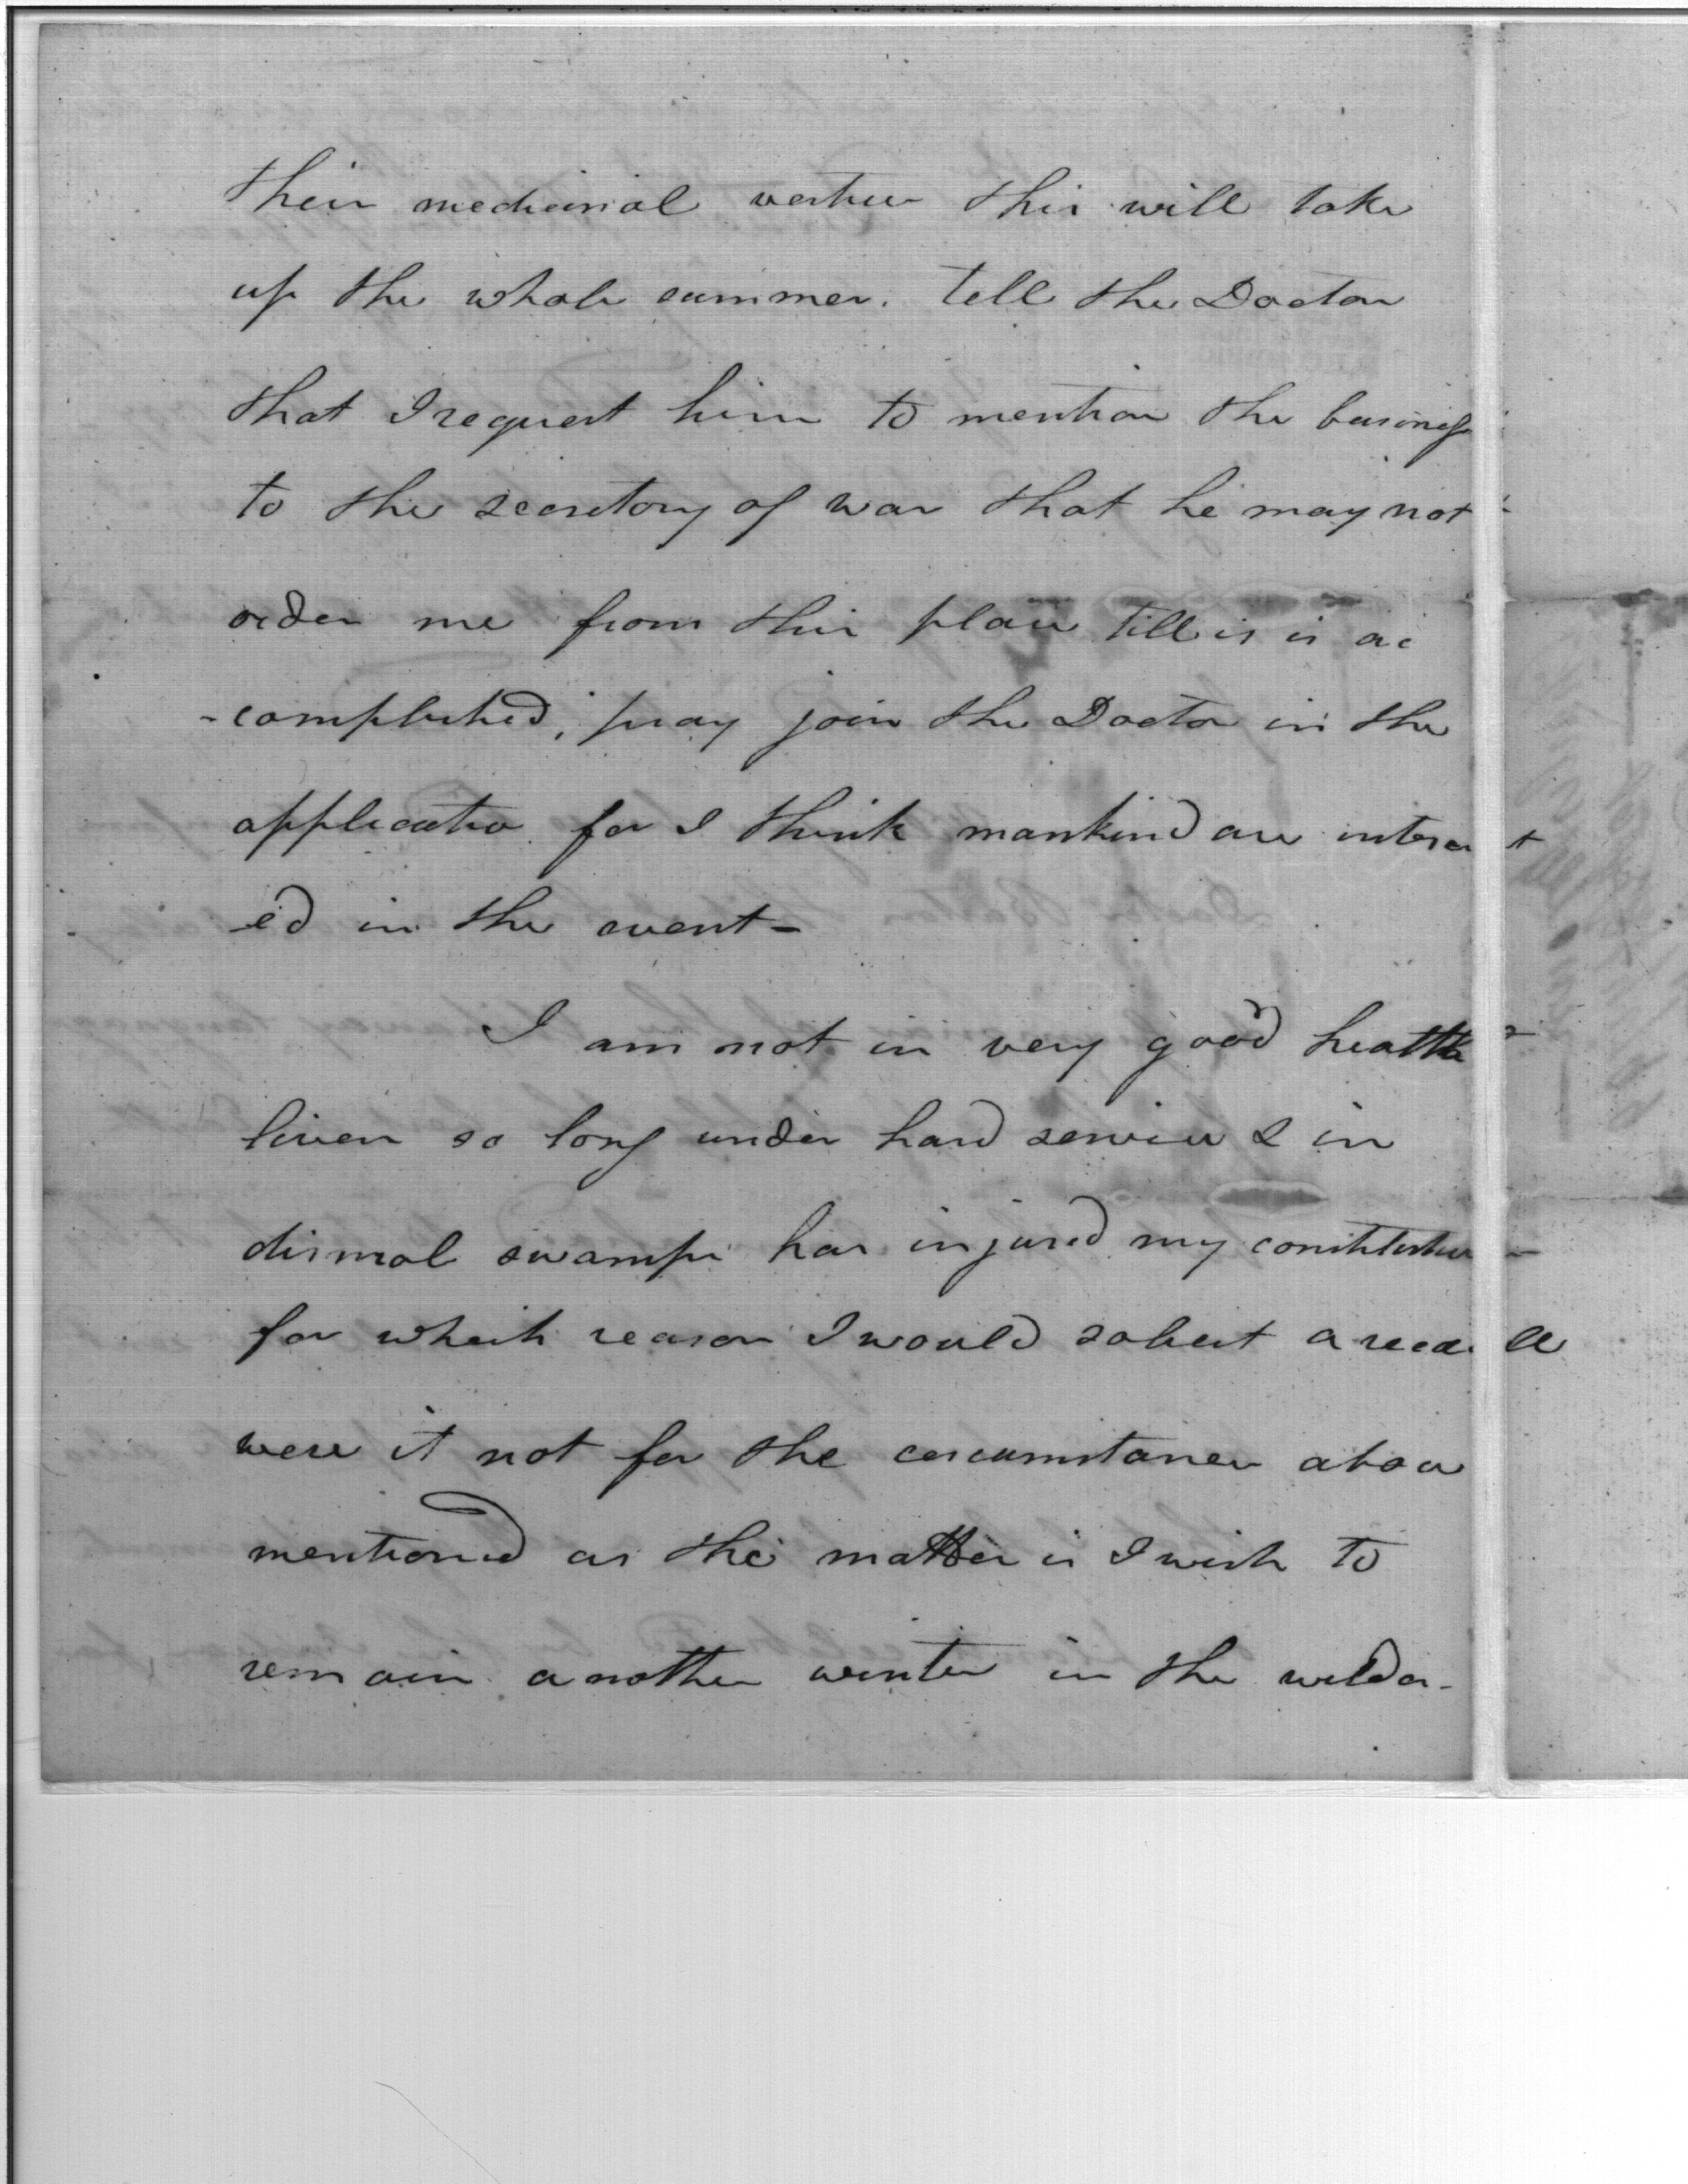 their medicinal vertues this will take
up the whole summer. tell the Doctor
that I request him to mention the business
to the secretory of war that he may not
order me from this place till is is ac
-complished; pray join the Doctor in the
applicatio for I think mankind are interest
ed in the event -
I am not in very good health
liven so long under hard service & in
dismal swamps has injured my constitution
for which reason I would solicit a recall
were it not for the circumstances above
mentioned as the matter is I wish to
remain another winter in the wilder-